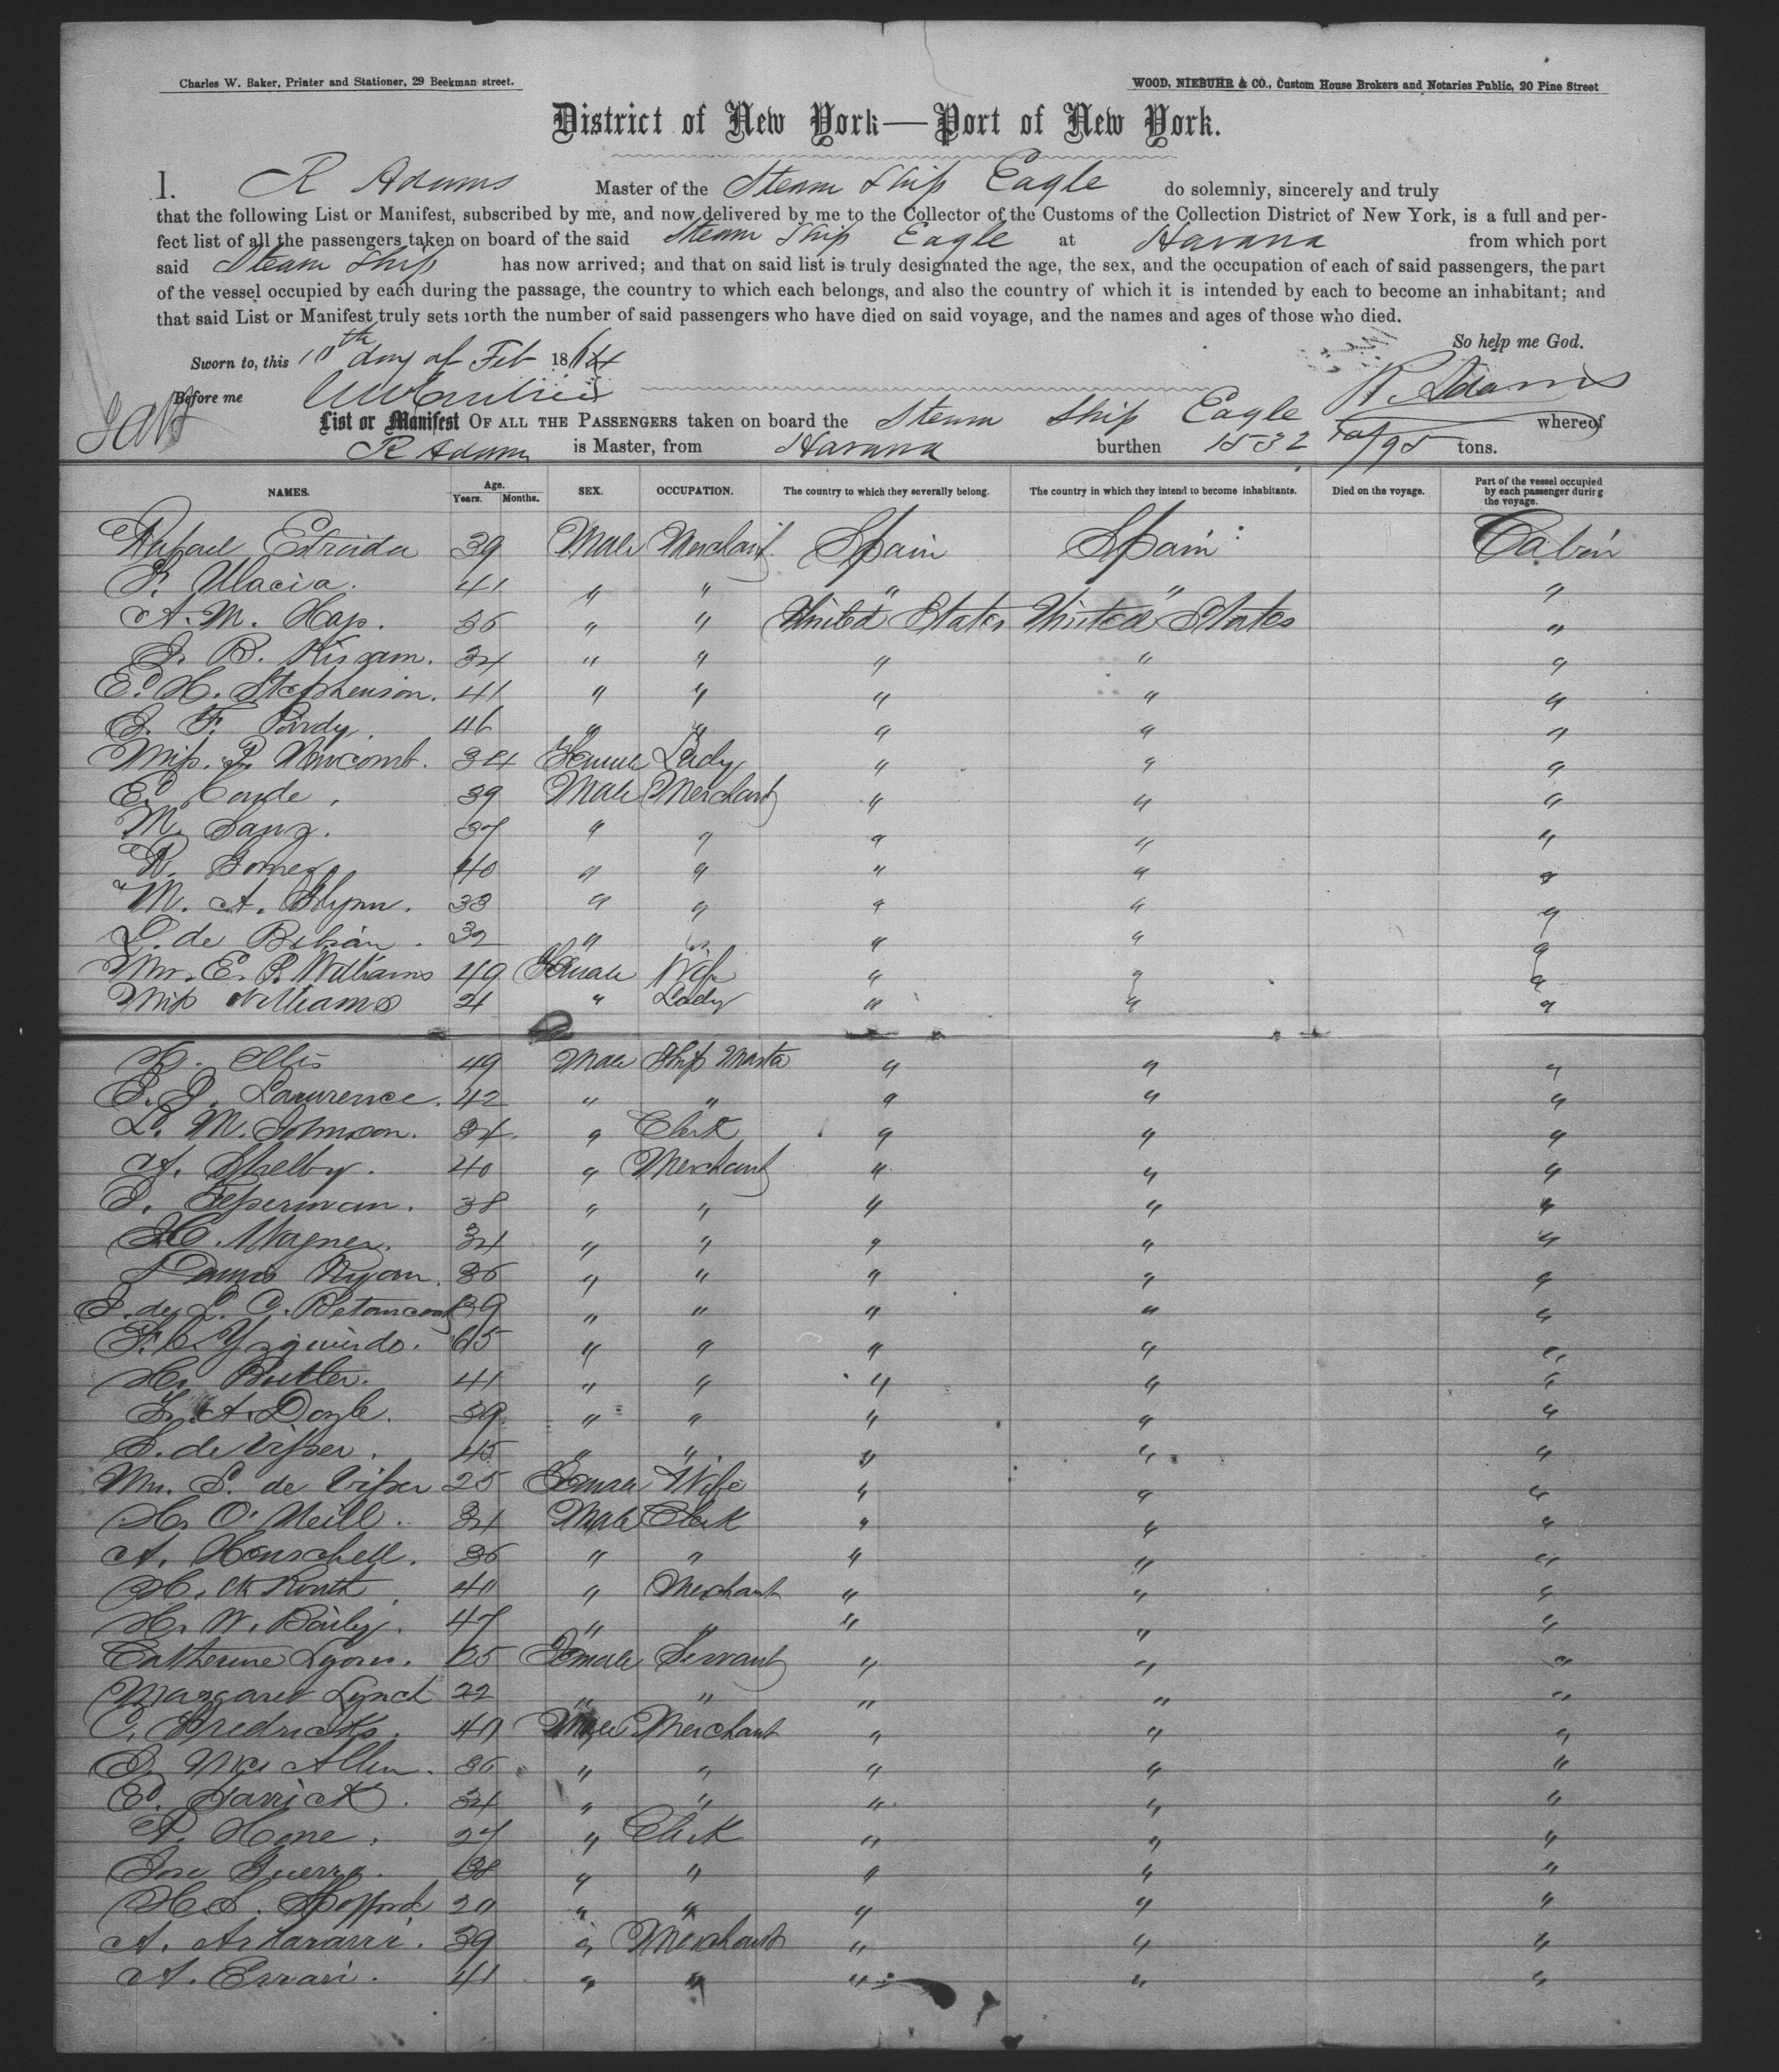 Charles W. Baker, Printer and Stationer, 29 Beekman street. WOOD, NIEBUHR & CO., Custom House Brokers and Notaries Public, 20 Pine Street
District of New York—Port of New York.
I. R Adams Master of the Steam Ship Eagle do solemnly, sincerely and truly
that the following List or Manifest, subscribed by me, and now delivered by me to the Collector of the Customs of the Collection District of New York, is a full and per-
fect list of all the passengers taken on board of the said Steam Ship Eagle at Havana from which port
said Steam Ship has now arrived; and that on said list is truly designated the age, the sex, and the occupation of each of said passengers, the part
of the vessel occupied by each during the passage, the country to which each belongs, and also the country of which it is intended by each to become an inhabitant; and
that said List or Manifest truly sets forth the number of said passengers who have died on said voyage, and the names and ages of those who died.
So help me God.
Sworn to, this 10th day of Feb 1864
Before me R. Adams
List or Manifest OF ALL THE PASSENGERS taken on board the Steam Ship Eagle whereof
R Adams is Master, from Havana burthen 1532 /95 tons.
NAMES. Age. Years. Months. SEX. OCCUPATION. The country to which they severally belong. The country in which they intend to become inhabitants. Died on the voyage. Part of the vessel occupied by each passenger during the voyage.
Rafael Estrada 39 Male Merchant Spain Spain Cabin
Ulacia. 41 " " " " "
A. M. Hap. 36 " " United States United States "
J. B. Kissam. 34 " " " " "
E. H. Stephenson. 41 " " " " "
J. F. Purdy. 46 " " " " "
Miss. P. Newcomb. 34 Female Lady " " "
E. Conde. 39 Male Merchant " " "
M. Sanz. 37 " " " " "
R. Gomez 40 " " " " "
M. A. Flynn. 33 " " " " "
L. de Bibian. 32 " " " " "
Mrs. E. P. Williams 49 Female Wife " " "
Miss Williams 21 " Lady " " "
H. Ellis 49 Male Ship Master " " "
Lawrence. 42 " " " " "
L. M. Johnson. 34. " Clerk " " "
A. Shelby. 40 " Merchant " " "
Tesserman. 38 " " " " "
H. Wagner. 34 " " " " "
Dennis Ryan. 36 " " " " "
J. de L. C. Betancourt 39 " " " " "
F. C. Yzquierdo. 65 " " " " "
H. Butler. 41 " " " " "
A. Doyle. 39. " " " " "
S. de Visser. 45 " " " " "
Mrs. S. de Visser 25 Female Wife " " "
H. O'Neill. 34 Male Clerk " " "
A. Henschell. 36 " " " " "
H. Routh 40 " Merchant " " "
H. W. Baily. 47 " " " " "
Catherine Lyons. 25 Female Servant " " "
Margaret Lynch 22 " " " " "
C. Fredricks. 40 Male Merchant " " "
Allen. 36 " " " " "
E. Garrick. 34 " " " " "
P. Hone. 27 " Clerk " " "
Jose Guerra. 38 " " " " "
H. S. Spofford 20 " " " " "
A. 39 " Merchant " " "
A. Errari. 41 " " " " "